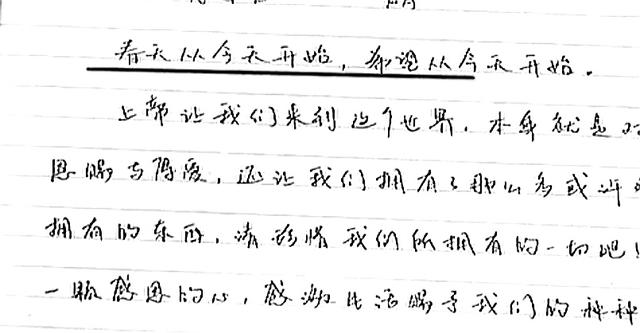 春天从今天开始，希望从今天开始。
上帝让我们来到这个世界，本身就是对
恩赐与厚爱，还让我们拥有了那么多或许
拥有的东西，请珍惜我们所拥有的一切吧！
一颗感恩的心，感谢生活赐予我们的种种